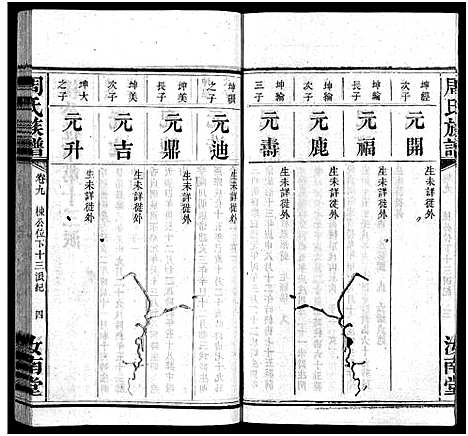 周氏族譜
汝南堂
坤經
元開
生未詳徙外
坤綸
次子
元福
生未詳徙外
坤綸
元鹿
生未詳徙外
坤綸
三子
元壽
生未詳徙外
之子
元迪
生未詳徙外
坤美
長子
元鼎
生未詳徙外
坤美
次子
元吉
生未詳徙外
坤大
之子
元升
生未詳徙外
周氏族譜
卷九
棟公位下十三派紀
四
汝南堂